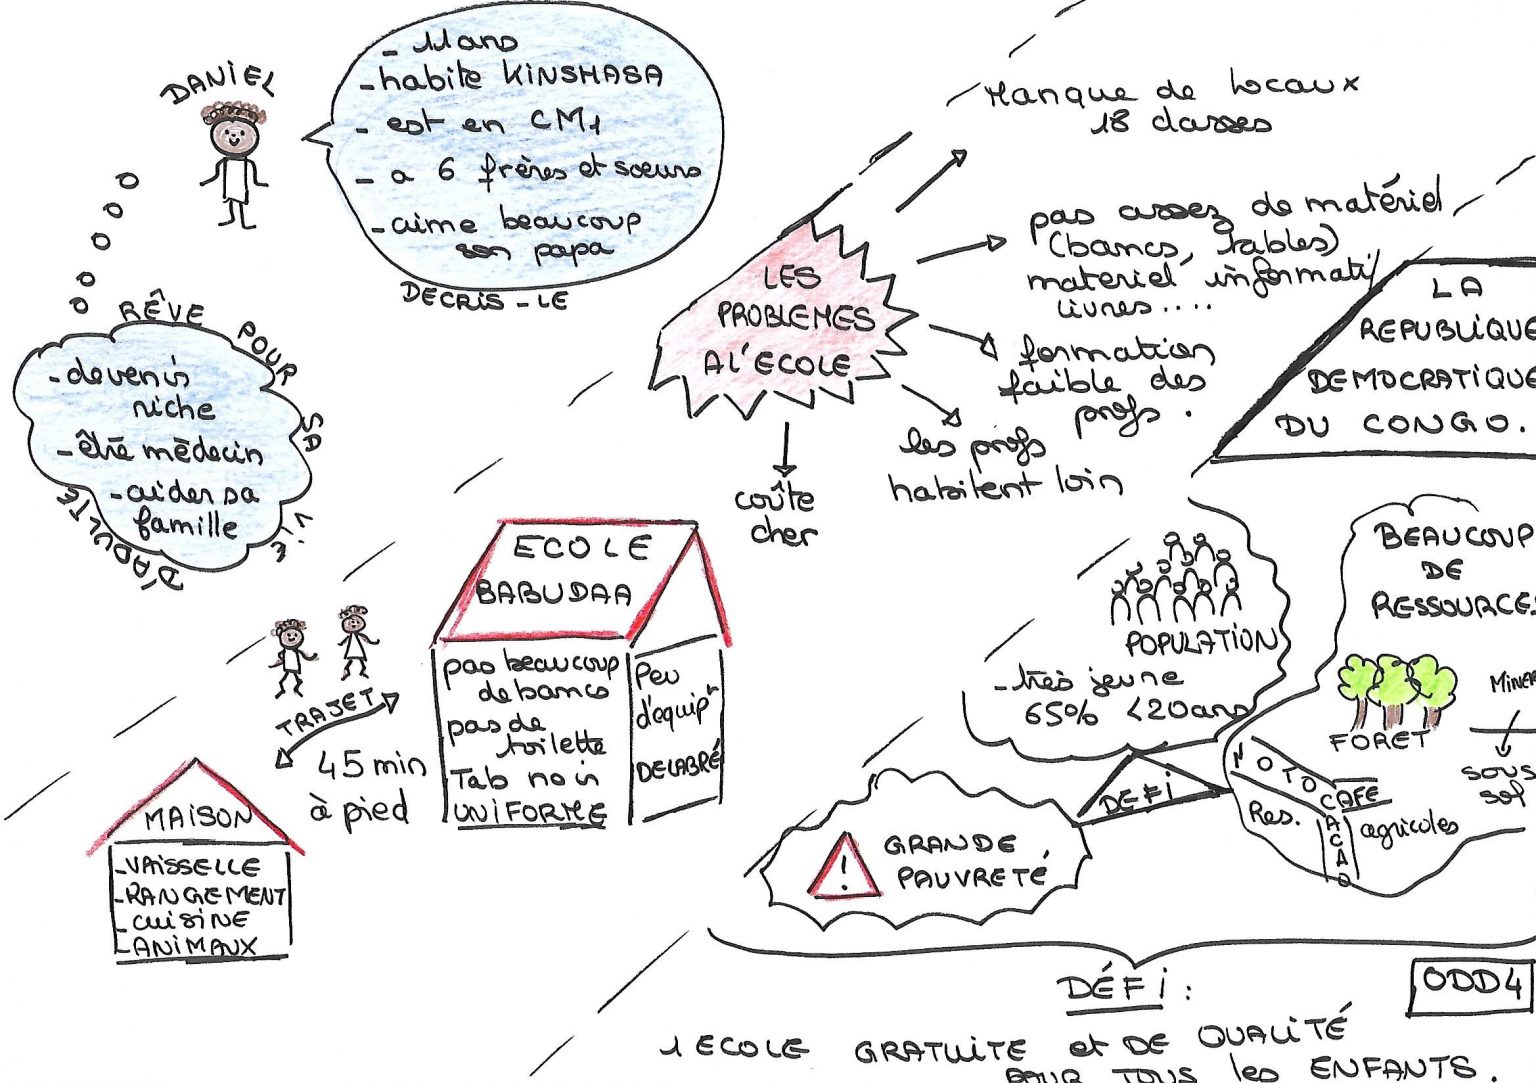 DANIEL
- 11 ans
- habite KINSHASA
- est en CM1
- a 6 frères et sœurs
- aime beaucoup
son papa
DECRIS-LE
RÊVE POUR SA VIE D'ADULTE
- devenir
riche
- être médecin
- aider sa
famille
LES
PROBLEMES
A L'ECOLE
Manque de locaux
18 classes
pas assez de matériel
(bancs, tables)
materiel informati
livres....
formation
faible des
profs.
les profs
habitent loin
coûte
cher
ECOLE
BABUDAA
pas beaucoup
de bancs
pas de
toilette
Tab noir
UNIFORME
Peu
d'equipt
DELABRÉ
TRAJET
45 min
à pied
MAISON
- VAISSELLE
- RANGEMENT
- CUISINE
- ANIMAUX
LA
REPUBLIQUE
DEMOCRATIQUE
DU CONGO.
POPULATION
- très jeune
65% <20ans
BEAUCOUP
DE
RESSOURCES
FORET
MINER
sous
sol
COTON
CAFE
CACAO
Res.
agricoles
DÉFI
!
GRANDE
PAUVRETÉ
DÉFI :
ODD4
1 ECOLE GRATUITE et DE QUALITÉ
POUR TOUS les ENFANTS.